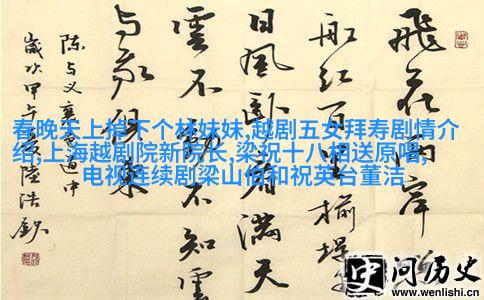 春晚天上掉下个林妹妹,越剧五女拜寿剧情介
绍,上海越剧院新院长,梁祝十八相送原唱,
电视连续剧梁山伯和祝英台董洁
飛花兩岸
船紅百里榆堤
日風卧看滿天
雲不動不知雲
与我俱東
陈与义襄邑道中
歲次甲午夏陸浩
问历史
www.wenlishi.cn